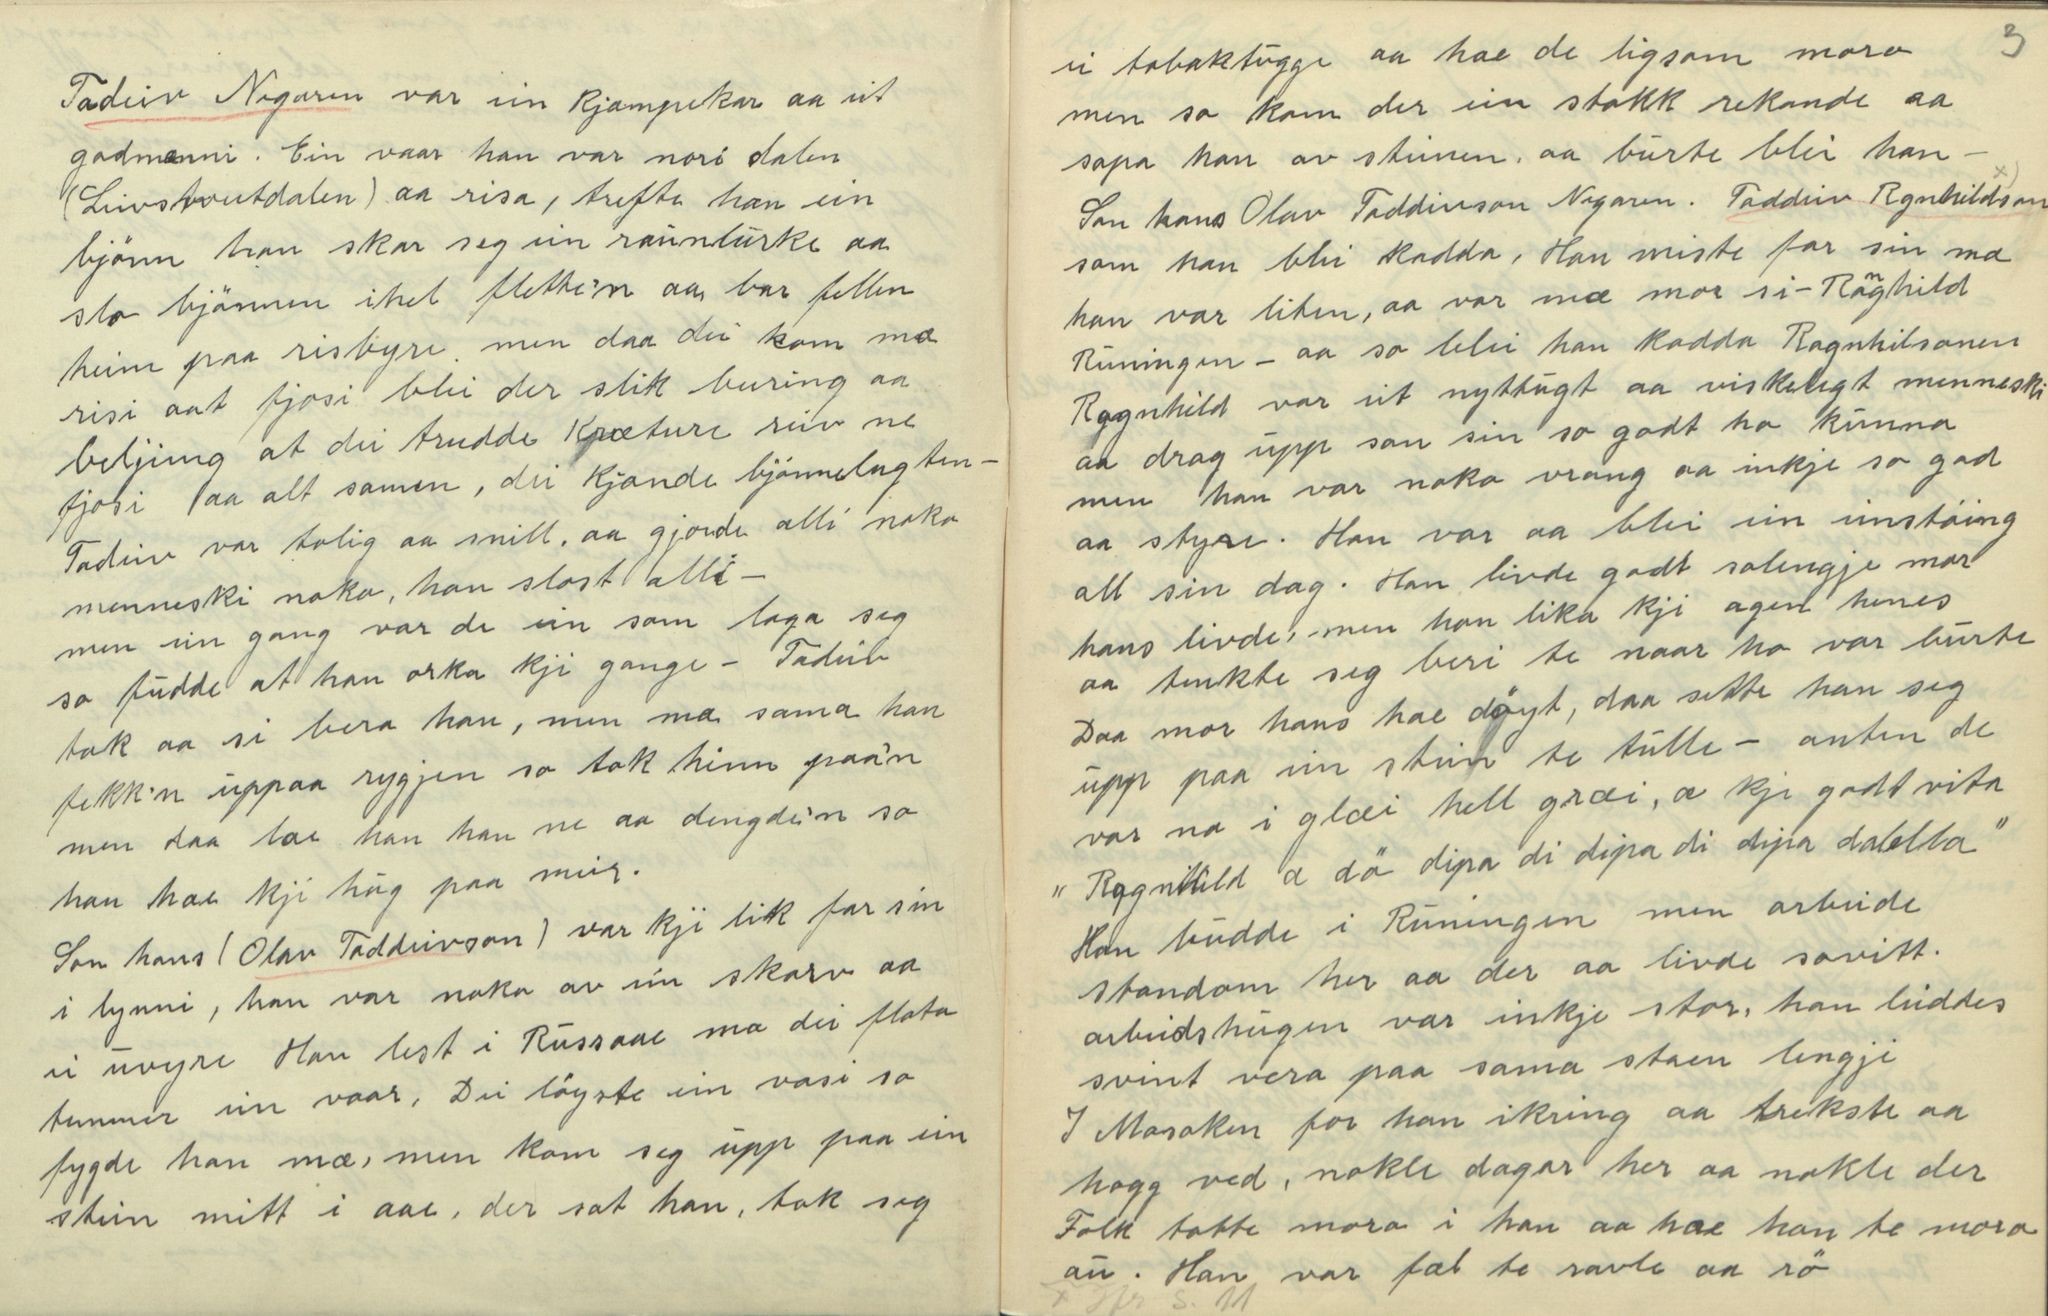 Tadeiv Nigaren var ein kjempekar aa eit
godmenni. Ein vaar han var nori dalen
(Leivstoutdalen) aa risa, trefte han ein
bjönn han skar seg ein raünlürke aa
slo bjönnen ihel flette'n aa bar fellen
heim paa risbyre. men daa dei kom mæ
risi aat fjosi blei der slik buring aa
beljing at dei trudde kræture reiv ne
fjosi aa alt samen, dei kjende bjönnelugten –
Tadeiv var tolig aa snill. aa gjorde alli noko
menneski noko, han slost alli –
men ein gang var de ein som laga seg
so füdde at han orka kji gange – Tadeiv
tok aa si bera han, men mæ sama han
fekk'n üppaa rygjen so tok hinn paa'n
men daa læ han han ne aa dengde'n so
han hae kji hüg paa meir.
Son hans (Olav Taddeivson) var kji lik far sin
i lynni, han var noko av ein skarv aa
ei üvyre Han lest i Rüssaae mæ dei flota
tummer ein vaar, Dei löyste ein vasi so
fygde han mæ, men kom seg üpp paa ein
stein mitt i aae, der sat han, tok seg
3
ei tobaktügge aa hae de ligsom moro
men so kom der ein stokk rekande aa
sopa han av steinen. aa bürte blei han –
Son hans Olav Taddeivson Nigaren. Taddeiv Rgnhildson x)
som han blei kadda, Han miste far sin mæ
han var liten, aa var mæ mor si – Ranghild
Rüningen – aa so blei han kadda Ragnhilsonen
Ragnhild var eit nyttügt aa viskelegt menneski
aa drog üpp son sin so godt ho künna
men han var noko vrang aa inkje so god
aa styre. Han var aa blei ein einstöing
all sin dag. Han livde godt solengje mor
hans livde, men han lika kji agen henes
aa tenkte seg beri te naar ho var bürte
Daa mor hans hae döyt, daa sette han seg
üpp paa ein stein te tülle – anten de
var na i glæi hell græi, æ kje godt vita
"Ragnhild æ dö dipa di dipa di dipa dalella"
Han büdde i Rüningen men arbeide
stondom her aa der aa livde sovitt.
arbeidshügen var inkje stor, han leiddes
svint vera paa sama staen lengji
I Mosoken for han ikring aa trekste aa
hogg ved, nokle dagar her aa nokle der
Folk totte moro i han aa hae han te moro
aü. Han var fæl te ravle aa rö
x Jfr s. 11